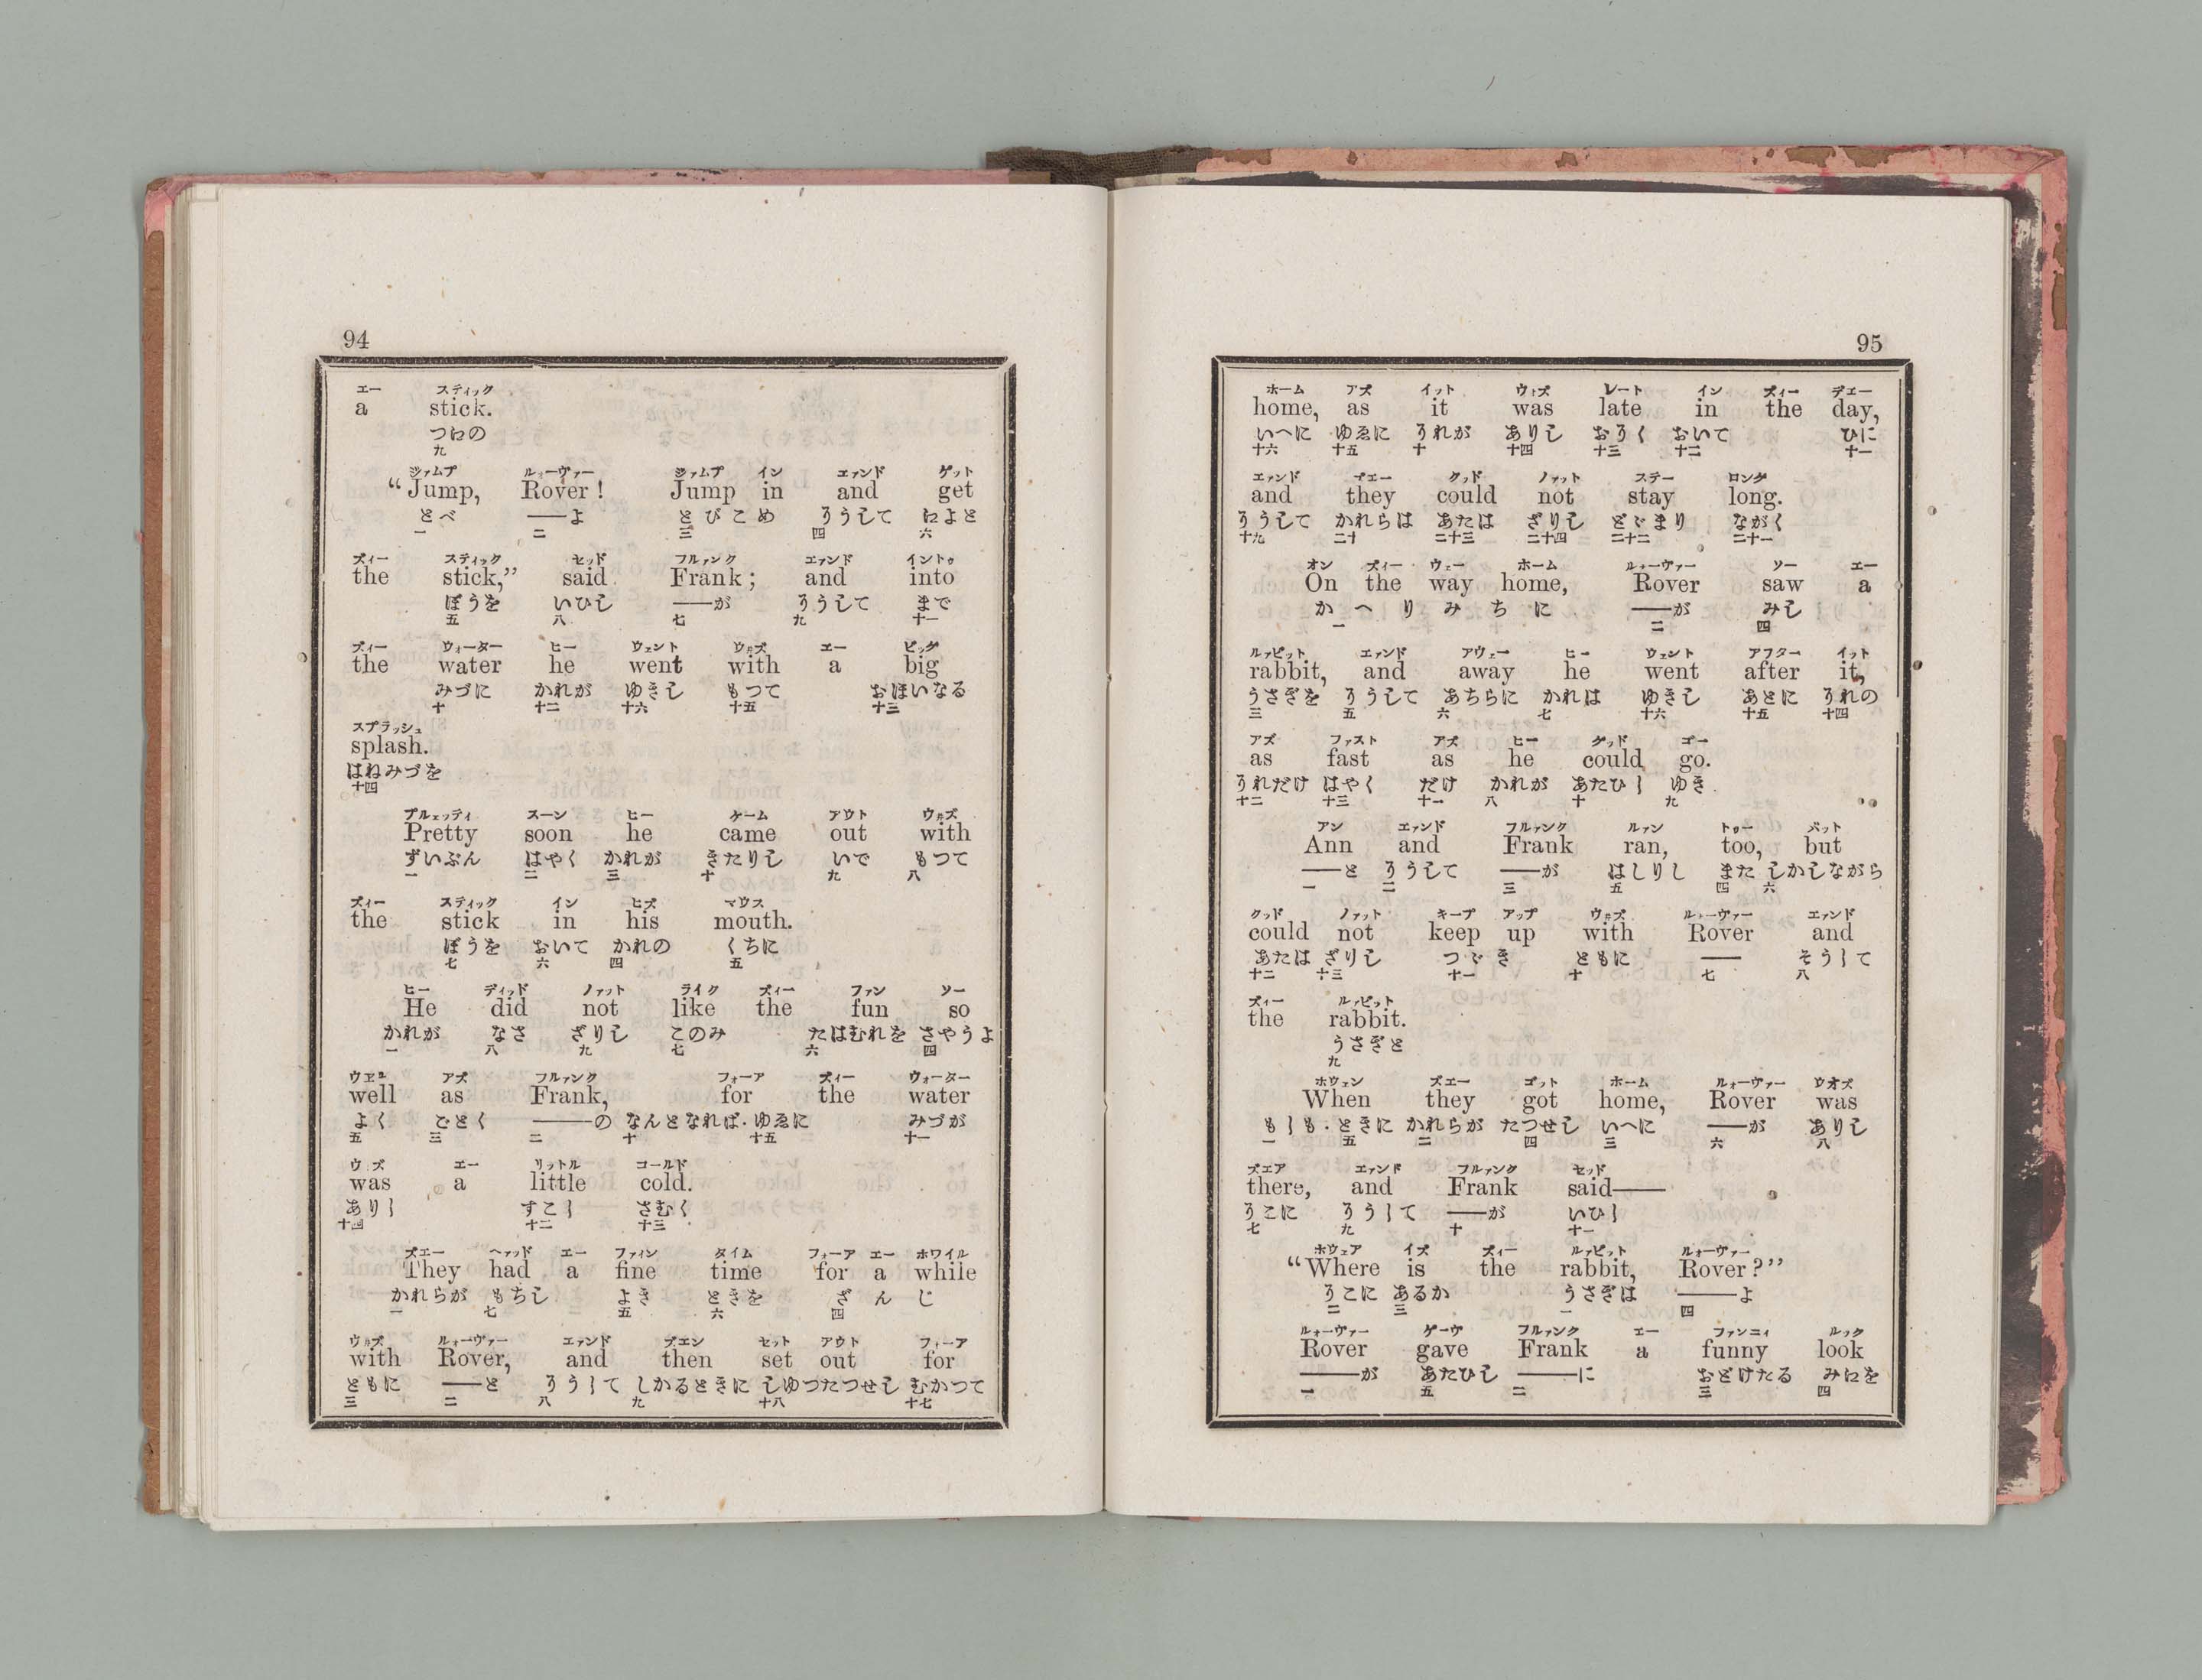 94
エー スティック
a stick.
つゑの
九
ジァムプ ルォーヴァー ジァムプ イン エァンド ゲット
“Jump, Rover! Jump in and get
とべ ——よ とびこめ そうして ゑよと
一 二 三 四 六
ズィー スティック セッド フルァンク エァンド イントゥ
the stick,” said Frank; and into
ぼうを いひし ——が そうして まで
五 八 七 九 十一
ズィー ウォーター ヒー ウェント ウ井ズ エー ビッグ
the water he went with a big
みづに かれが ゆきし もつて おほいなる
十 十二 十六 十五 十三
スプラッシュ
splash.
はねみづを
十四
プルェッティ スーン ヒー ケーム アウト ウ井ズ
Pretty soon he came out with
ずいぶん はやく かれが きたりし いで もつて
一 二 三 十 九 八
ズィー スティック イン ヒズ マウス
the stick in his mouth.
ぼうを おいて かれの くちに
七 六 四 五
ヒー ディッド ノァット ライク ズィー ファン ソー
He did not like the fun so
かれが なさ ざりし このみ たはむれを さやうよ
一 八 九 七 六 四
アズ フルァンク フォーア ズィー ウォーター
well as Frank, for the water
よく ごとく ——の なんとなれば・ゆゑに みづが
五 三 二 十 十五 十一
エー リットル コールド
was a little cold.
ありし すこし さむく
十四 十二 十三
ズエー ヘァッド エー ファイン タイム フォーア エー ホワイル
They had a fine time for a while
かれらが もちし よき ときを ざんじ
一 七 五 六 四
ウ井ズ ルォーヴァー エァンド ズエン セット アウト フォーア
with Rover, and then set out for
ともに ——と そうして しかるときに しゆつたつせし むかつて
三 二 八 九 十八 十七
95
ホーム アズ イット ウォズ レート イン ズィー デエー
home, as it was late in the day,
いへに ゆゑに それが ありし おそく おいて ひに
十六 十五 十 十四 十三 十二 十一
エァンド ズエー クッド ノァット ステー ロング
and they could not stay long.
そうして かれらは あたは ざりし とゞまり ながく
十九 二十 二十三 二十四 二十二 二十一
オン ズィー ウェー ホーム ルォーヴァー ソー エー
On the way home, Rover saw a
かへりみちに ——が みし
一 二 四
ルァビット エァンド アウェー ヒー ウェント アフター イット
rabbit, and away he went after it,
うさぎを そうして あちらに かれは ゆきし あとに それの
三 五 六 七 十六 十五 十四
アズ ファスト アズ ヒー クッド ゴー
as fast as he could go.
それだけ はやく だけ かれが あたひし ゆき
十二 十三 十一 八 十 九
アン エァンド フルァンク ルァン トゥー バット
Ann and Frank ran, too, but
——と そうして ——が はしりし また しかしながら
一 二 三 五 四 六
クッド ノァット キープ アップ ウ井ズ ルォーヴァー エァンド
could not keep up with Rover and
あたは ざりし つゞき ともに —— そうして
十二 十三 十一 十 七 八
ズィー ルァビット
the rabbit.
うさぎと
九
ホウェン ズエー ゴット ホーム ルォーヴァー ウオズ
When they got home, Rover was
もしも・ときに かれらが たつせし いへに ——が ありし
一 五 二 四 三 六 八
ズエア エァンド フルァンク セッド
there, and Frank said——
そこに そうして ——が いひし
七 九 十 十一
ホウェア イズ ズィー ルァビット ルォーヴァー
“Where is the rabbit, Rover?”
そこに あるか うさぎは ——よ
二 三 一 四
ルォーヴァー ゲーヴ フルァンク エー ファンニィ ルック
Rover gave Frank a funny look
——が あたひし ——に おどけたる みゑを
一 五 二 三 四